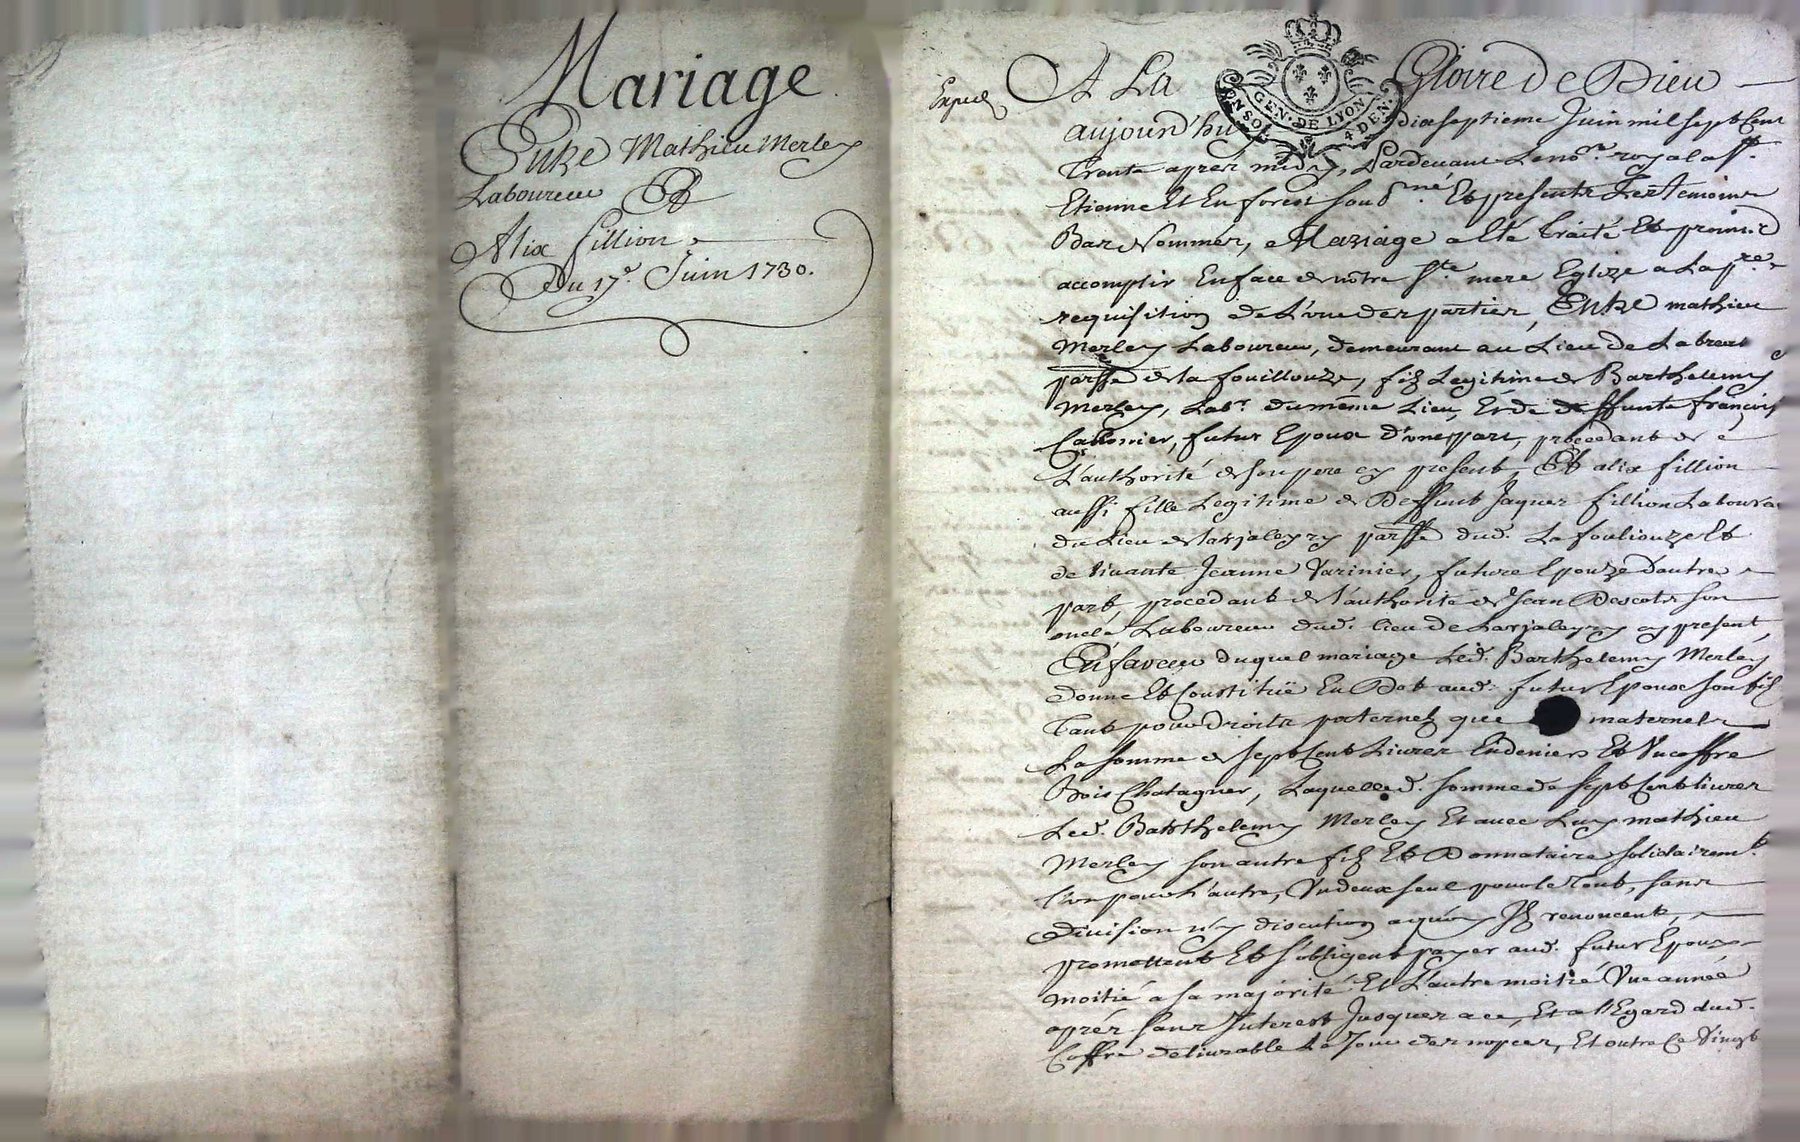 Mariage
Entre Mathieu Merley
Laboureur Et
Alix fillion
Du 17e. Juin 1730.
Exped
A La Gloire de Dieu
GEN. DE LYON
4 DEN.
aujourd'huy dixseptieme Juin mil sept Cent
Trente apres midy, Pardevant Le nore. royal a St.
Etienne Et En forest sousné. Et presents Les Temoins
Bas Nommes, Mariage a Eté Traité Et promis
accomplir En face de nôtre Ste. mere Eglize a La pre.
requisition de L'une des parties, Entre mathieu
Merley Laboureur, demeurant au Lieu de
parsse de la fouillouze, fils Legitime de Barthelemy
Merley, Labr. du même Lieu, Et de deffunte françoise
futur Epoux d'une part, procedant de
L'authorité de son pere cy present, Et alix fillion
aussi fille Legitime de Deffunt Jaques fillion Laboureur
du Lieu de parsse dud. La fouliouze Et
de vivante Jeanne Varinier, future Epouze d'autre
part, procedant de l'authorité de Jean Descots son
oncle Laboureur dud. lieu de cy present,
En faveur duquel mariage Led. Barthelemy Merley
donne Et Constitüe En Dot aud. futur Epoux son fils
Tant pour droits paternels que maternels
La somme de sept Cent Livres En deniers Et Un coffre
Bois Chatagner, Laquelle d. somme de sept Cent livres
Led. Barthelemy Merley Et avec Luy mathieu
Merley son autre fils Et Donnataire solidairemt.
l'un pour l'autre, Un deux seul pour le Tout, sans
division n'y discution a quoy Ils renoncent,
promettent Et s'obligent payer aud. futur Epoux
moitié a sa majorité Et L'autre moitié Une année
aprés sans Interest Jusques a ce, Et a l'Egard dud.
Coffre delivrable Le Jour des nopces, Et outre Ce Vingt